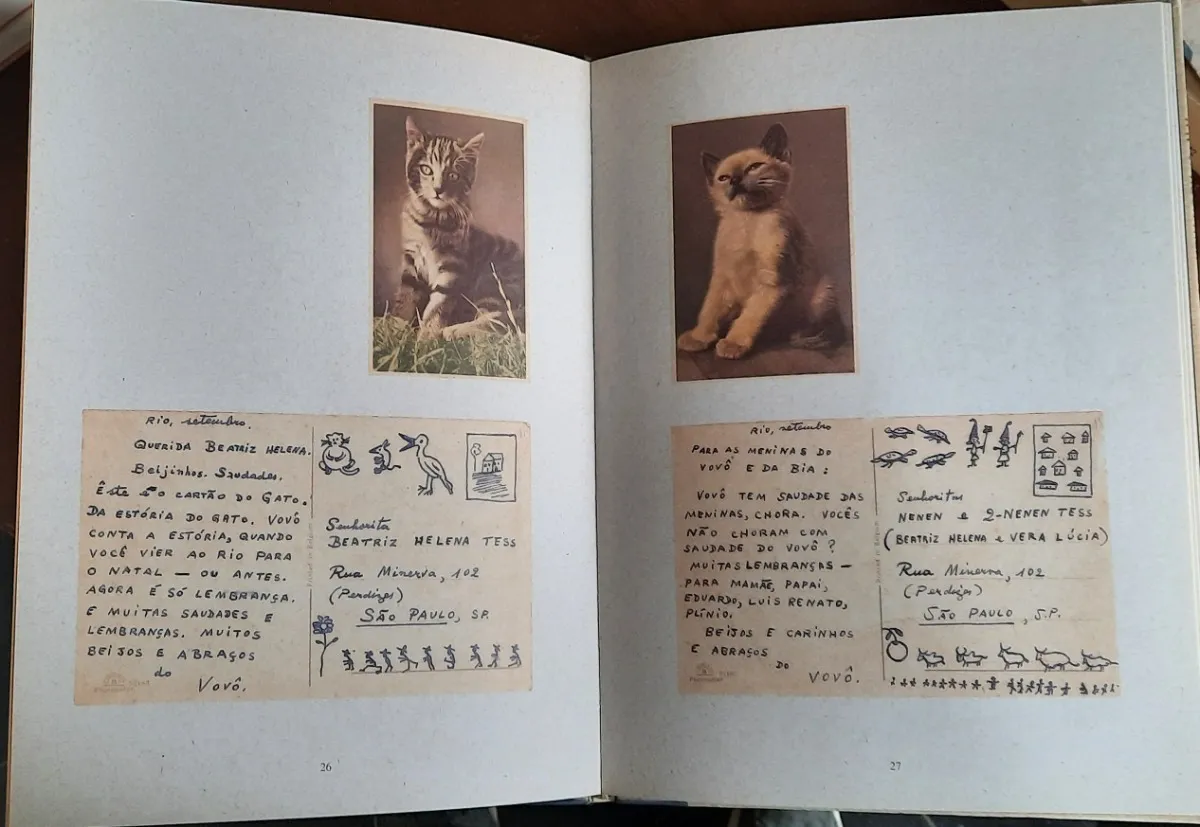 Rio, setembro.
QUERIDA BEATRIZ HELENA.
Beijinhos. Saudades.
ÊSTE É O CARTÃO DO GATO.
DA ESTÓRIA DO GATO. VOVÔ
CONTA A ESTÓRIA, QUANDO
VOCÊ VIER AO RIO PARA
O NATAL — OU ANTES.
AGORA É SÓ LEMBRANÇA.
E MUITAS SAUDADES E
LEMBRANÇAS. MUITOS
BEIJOS E ABRAÇOS
do
VOVÔ.
Senhorita
BEATRIZ HELENA TESS
Rua Minerva, 102
(Perdizes)
SÃO PAULO, SP.
26
Rio, setembro
PARA AS MENINAS DO
VOVÔ E DA BIA:
VOVÔ TEM SAUDADE DAS
MENINAS, CHORA. VOCÊS
NÃO CHORAM COM
SAUDADE DO VOVÔ?
MUITAS LEMBRANÇAS —
PARA MAMÃE, PAPAI,
EDUARDO, LUIS RENATO,
PLÍNIO.
BEIJOS E CARINHOS
E ABRAÇOS
DO
VOVÔ.
Senhoritas
NENEN e 2-NENEN TESS
(BEATRIZ HELENA e VERA LÚCIA)
Rua Minerva, 102
(Perdizes)
SÃO PAULO, S.P.
27